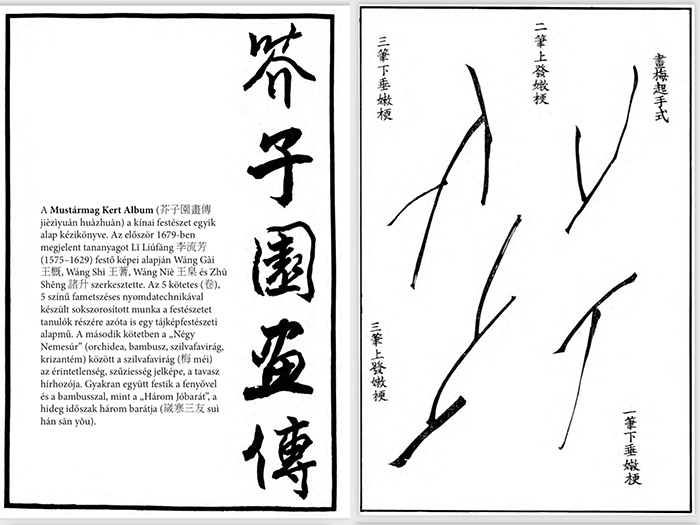 A Mustármag Kert Album (芥子園畫傳
jièzìyuán huàzhuàn) a kínai festészet egyik
alap kézikönyve. Az először 1679-ben
megjelent tananyagot Lǐ Liúfāng 李流芳
(1575–1629) festő képei alapján Wáng Gài
王概, Wáng Shī 王蓍, Wáng Niè 王臬 és Zhū
Shēng 諸升 szerkesztette. Az 5 kötetes (卷),
5 színű fametszéses nyomdatechnikával
készült sokszorosított munka a festészetet
tanulók részére azóta is egy tájképfestészeti
alapmű. A második kötetben a „Négy
Nemesúr” (orchidea, bambusz, szilvafavirág,
krizantém) között a szilvafavirág (梅 méi)
az érintetlenség, szűziesség jelképe, a tavasz
hírhozója. Gyakran együtt festik a fenyővel
és a bambusszal, mint a „Három Jóbarát”, a
hideg időszak három barátja (歲寒三友 suì
hán sān yǒu).
芥子園画傳
畫梅起手式
二筆上發嫩梗
三筆下垂嫩梗
一筆下垂嫩梗
三筆上發嫩梗